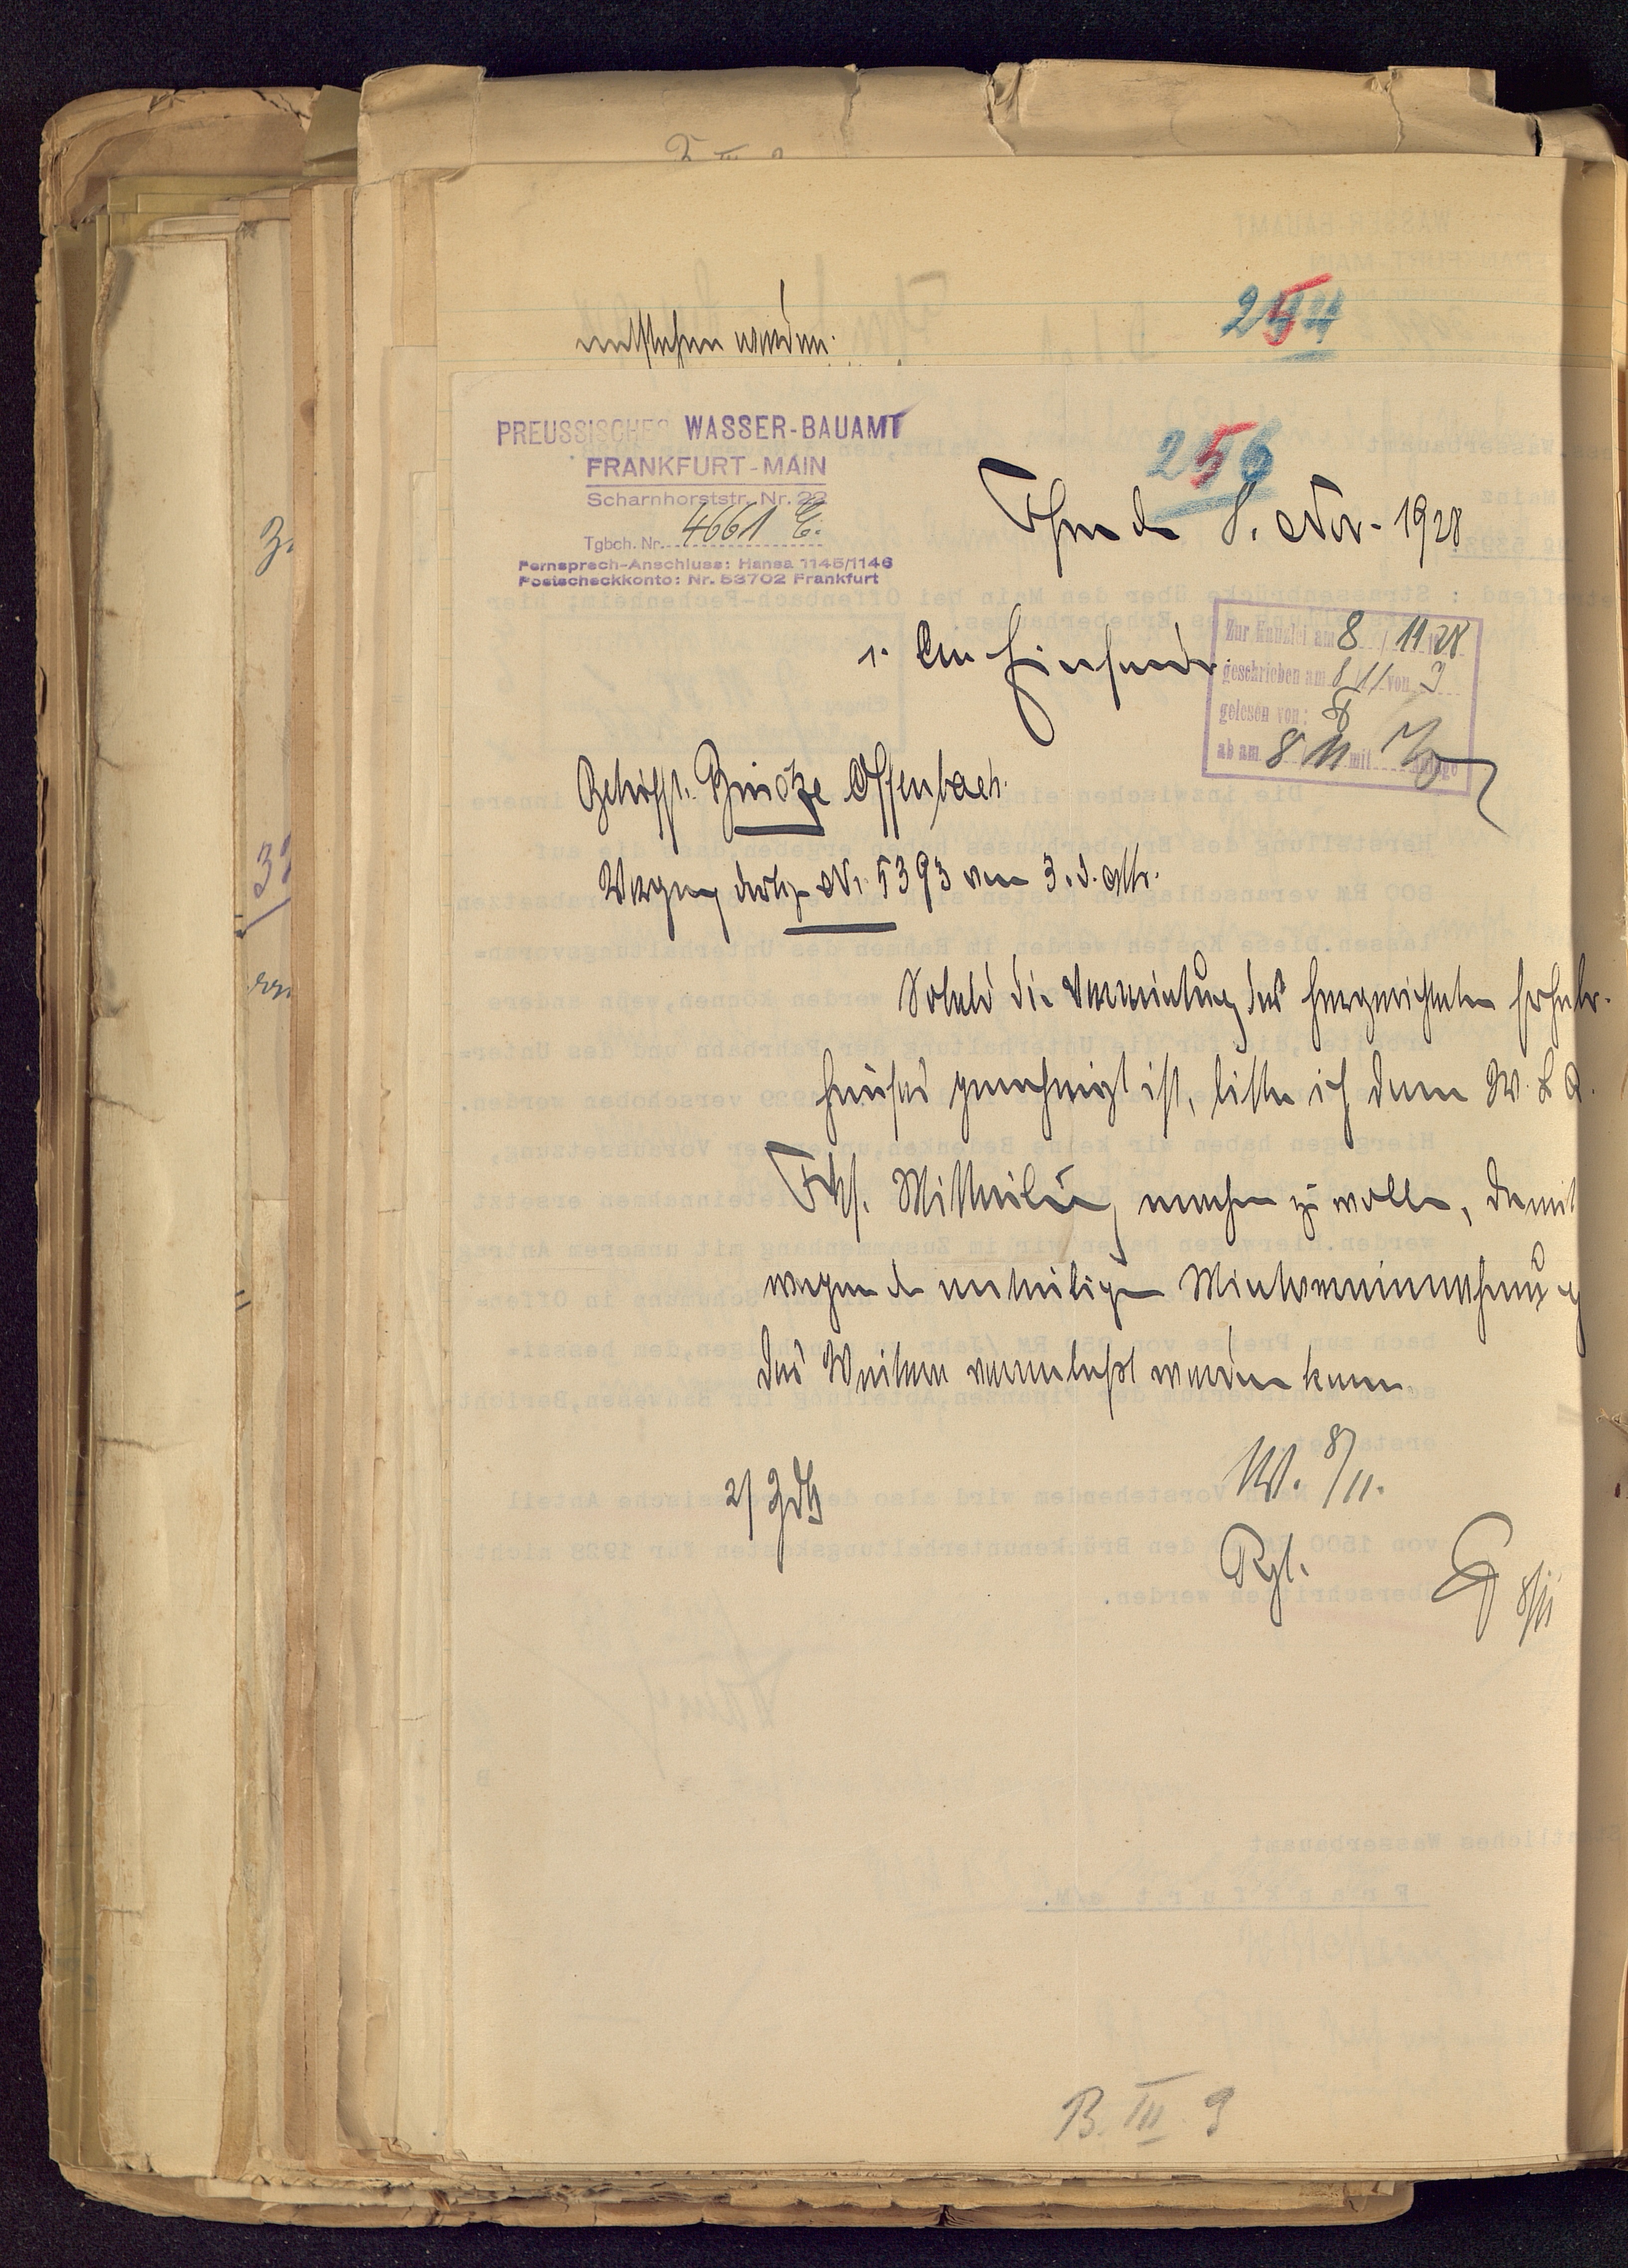 entstehen werden.
254
PREUSSISCHES WASSER-BAUAMT
FRANKFURT-MAIN
Scharnhorststr. Nr. 22
Tgbch. Nr. 4661 E.
Fernsprech-Anschluss: Hansa 1145/1146
Postscheckkonto: Nr. 53702 Frankfurt
256
8. Nov. 1928
Zur Kanzlei am 8/11 28
geschrieben am 8/11 von
gelesen von:
ab am 8 11 mit Anlage
1. An Einsender
Betrifft: Brücke Offenbach.
Verfügung dortige Nr. 5393 vom 3. d. Mts.
Sobald die Vermietung des hergerichteten Erheber-
hauses genehmigt ist, bitte ich dem W. B. A.
Ffm. Mitteilung machen zu wollen, damit
wegen der anteiligen Mietvereinnahmung
das Weitere veranlaßt werden kann.
2/ ZdA
W. 8/11.
8/11
B. III 9